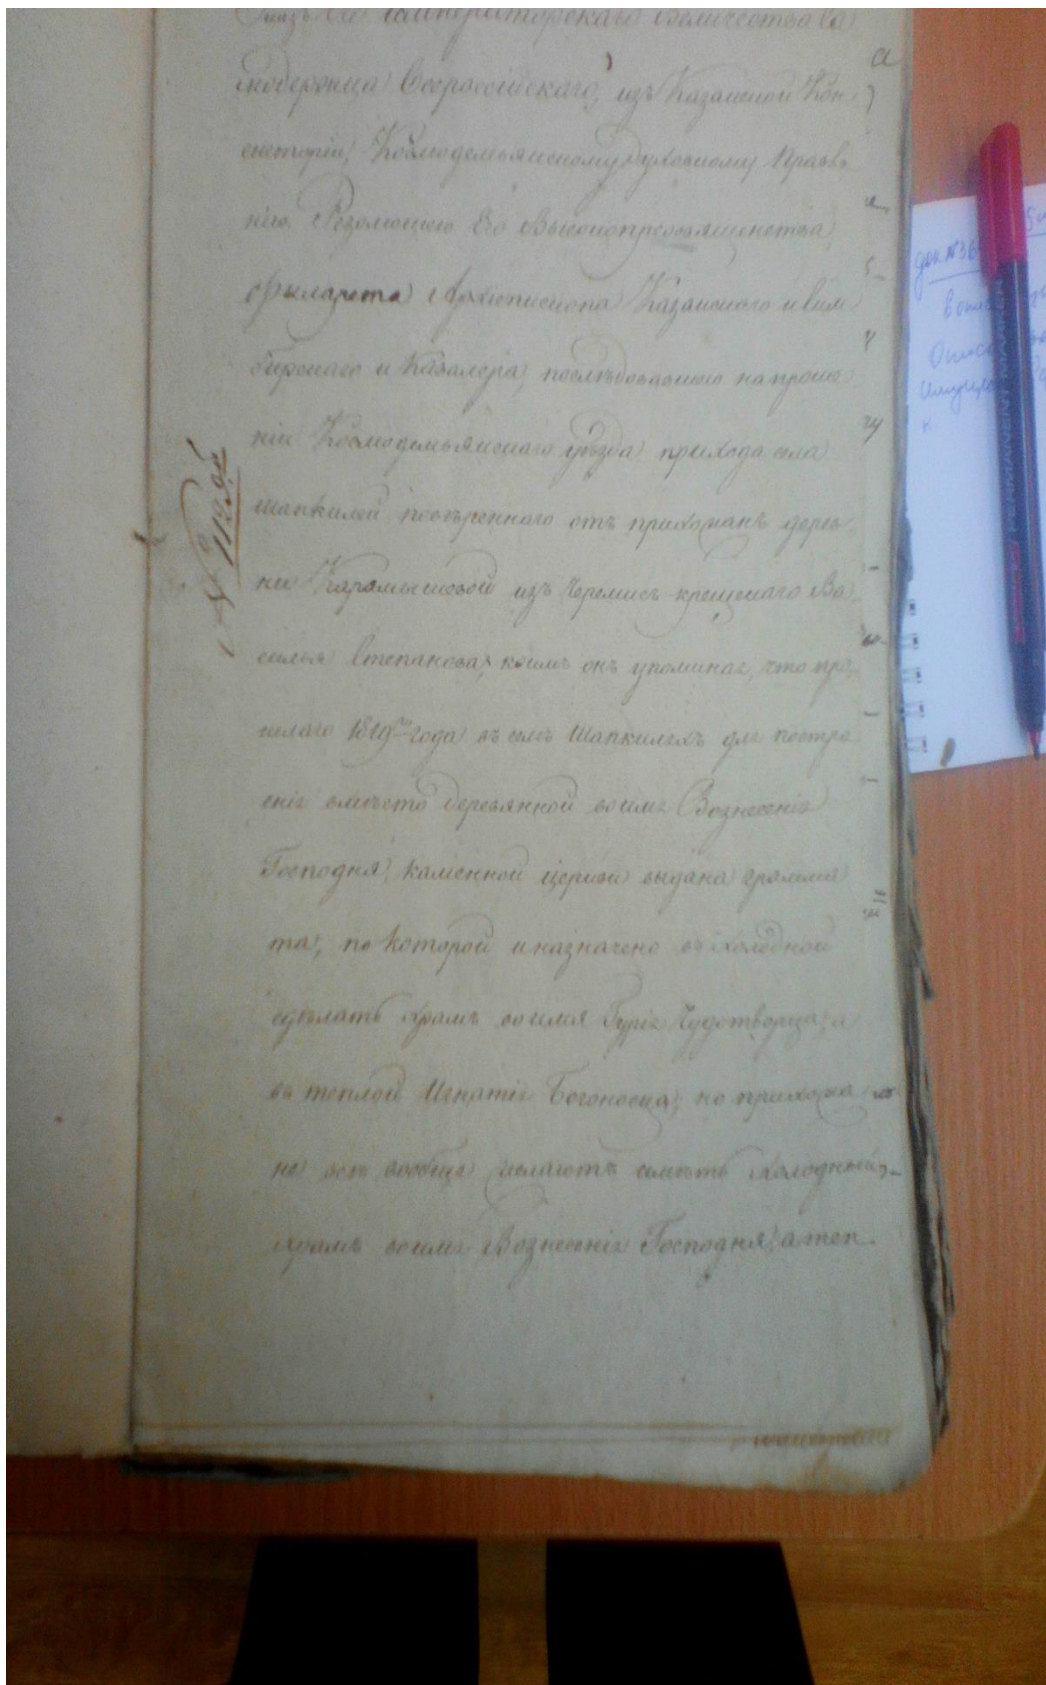 Указъ Его Императорскаго Величества Са
модержца Всероссійскаго, изъ Казанской Кон
систоріи, Козмодемьянскому Духовному Правле
нію. Резолюціею Его Высокопреосвященства
Филарета Архіепископа Казанскаго и Сим
бирскаго и Кавалера, последовавшею на проше
ніи Козмодемьянскаго уѣзда прихода села
Шапкилей повѣреннаго отъ прихожанъ дерев
ни Карамышевой изъ Черемисъ крещенаго Ва
силья Степанова, коимъ онъ упоминая, что про
шлаго 1819го года въ селѣ Шапкиляхъ для постро
енія вмѣсто деревянной во имя Вознесенія
Господня, каменной церкви выдана грамма
та, по которой и назначено въ холодной
сдѣлать храмъ во имя Гурія Чудотворца, а
въ теплой Игнатія Богоносца; но прихожа
не всѣ вообще желаютъ имѣть холодный
храмъ во имя Вознесенія Господня, а теп
№ 1125й
док №36